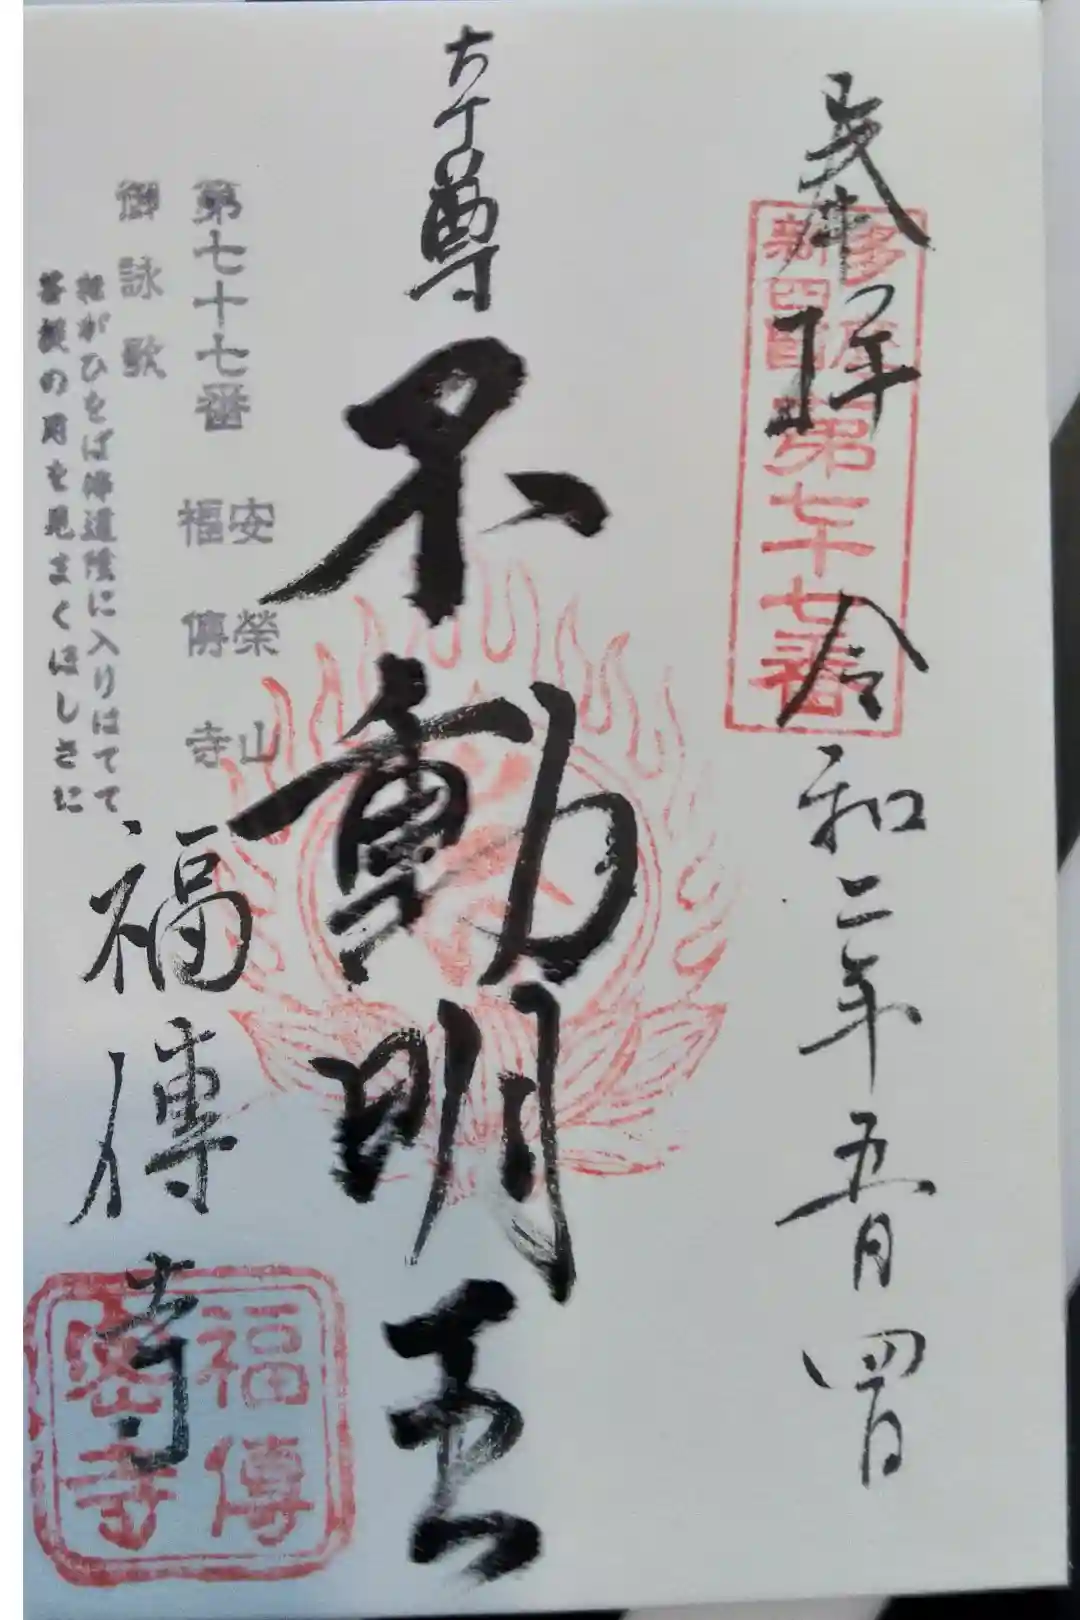 奉拝
多摩
新四国
第七十七番
令和二年五月四日
本尊
不動明王
第七十七番
安榮山
福傳寺
御詠歌
ねがひをば佛道陰に入りはてて
菩提の月を見まくほしさに
福傳寺
福傳
密寺